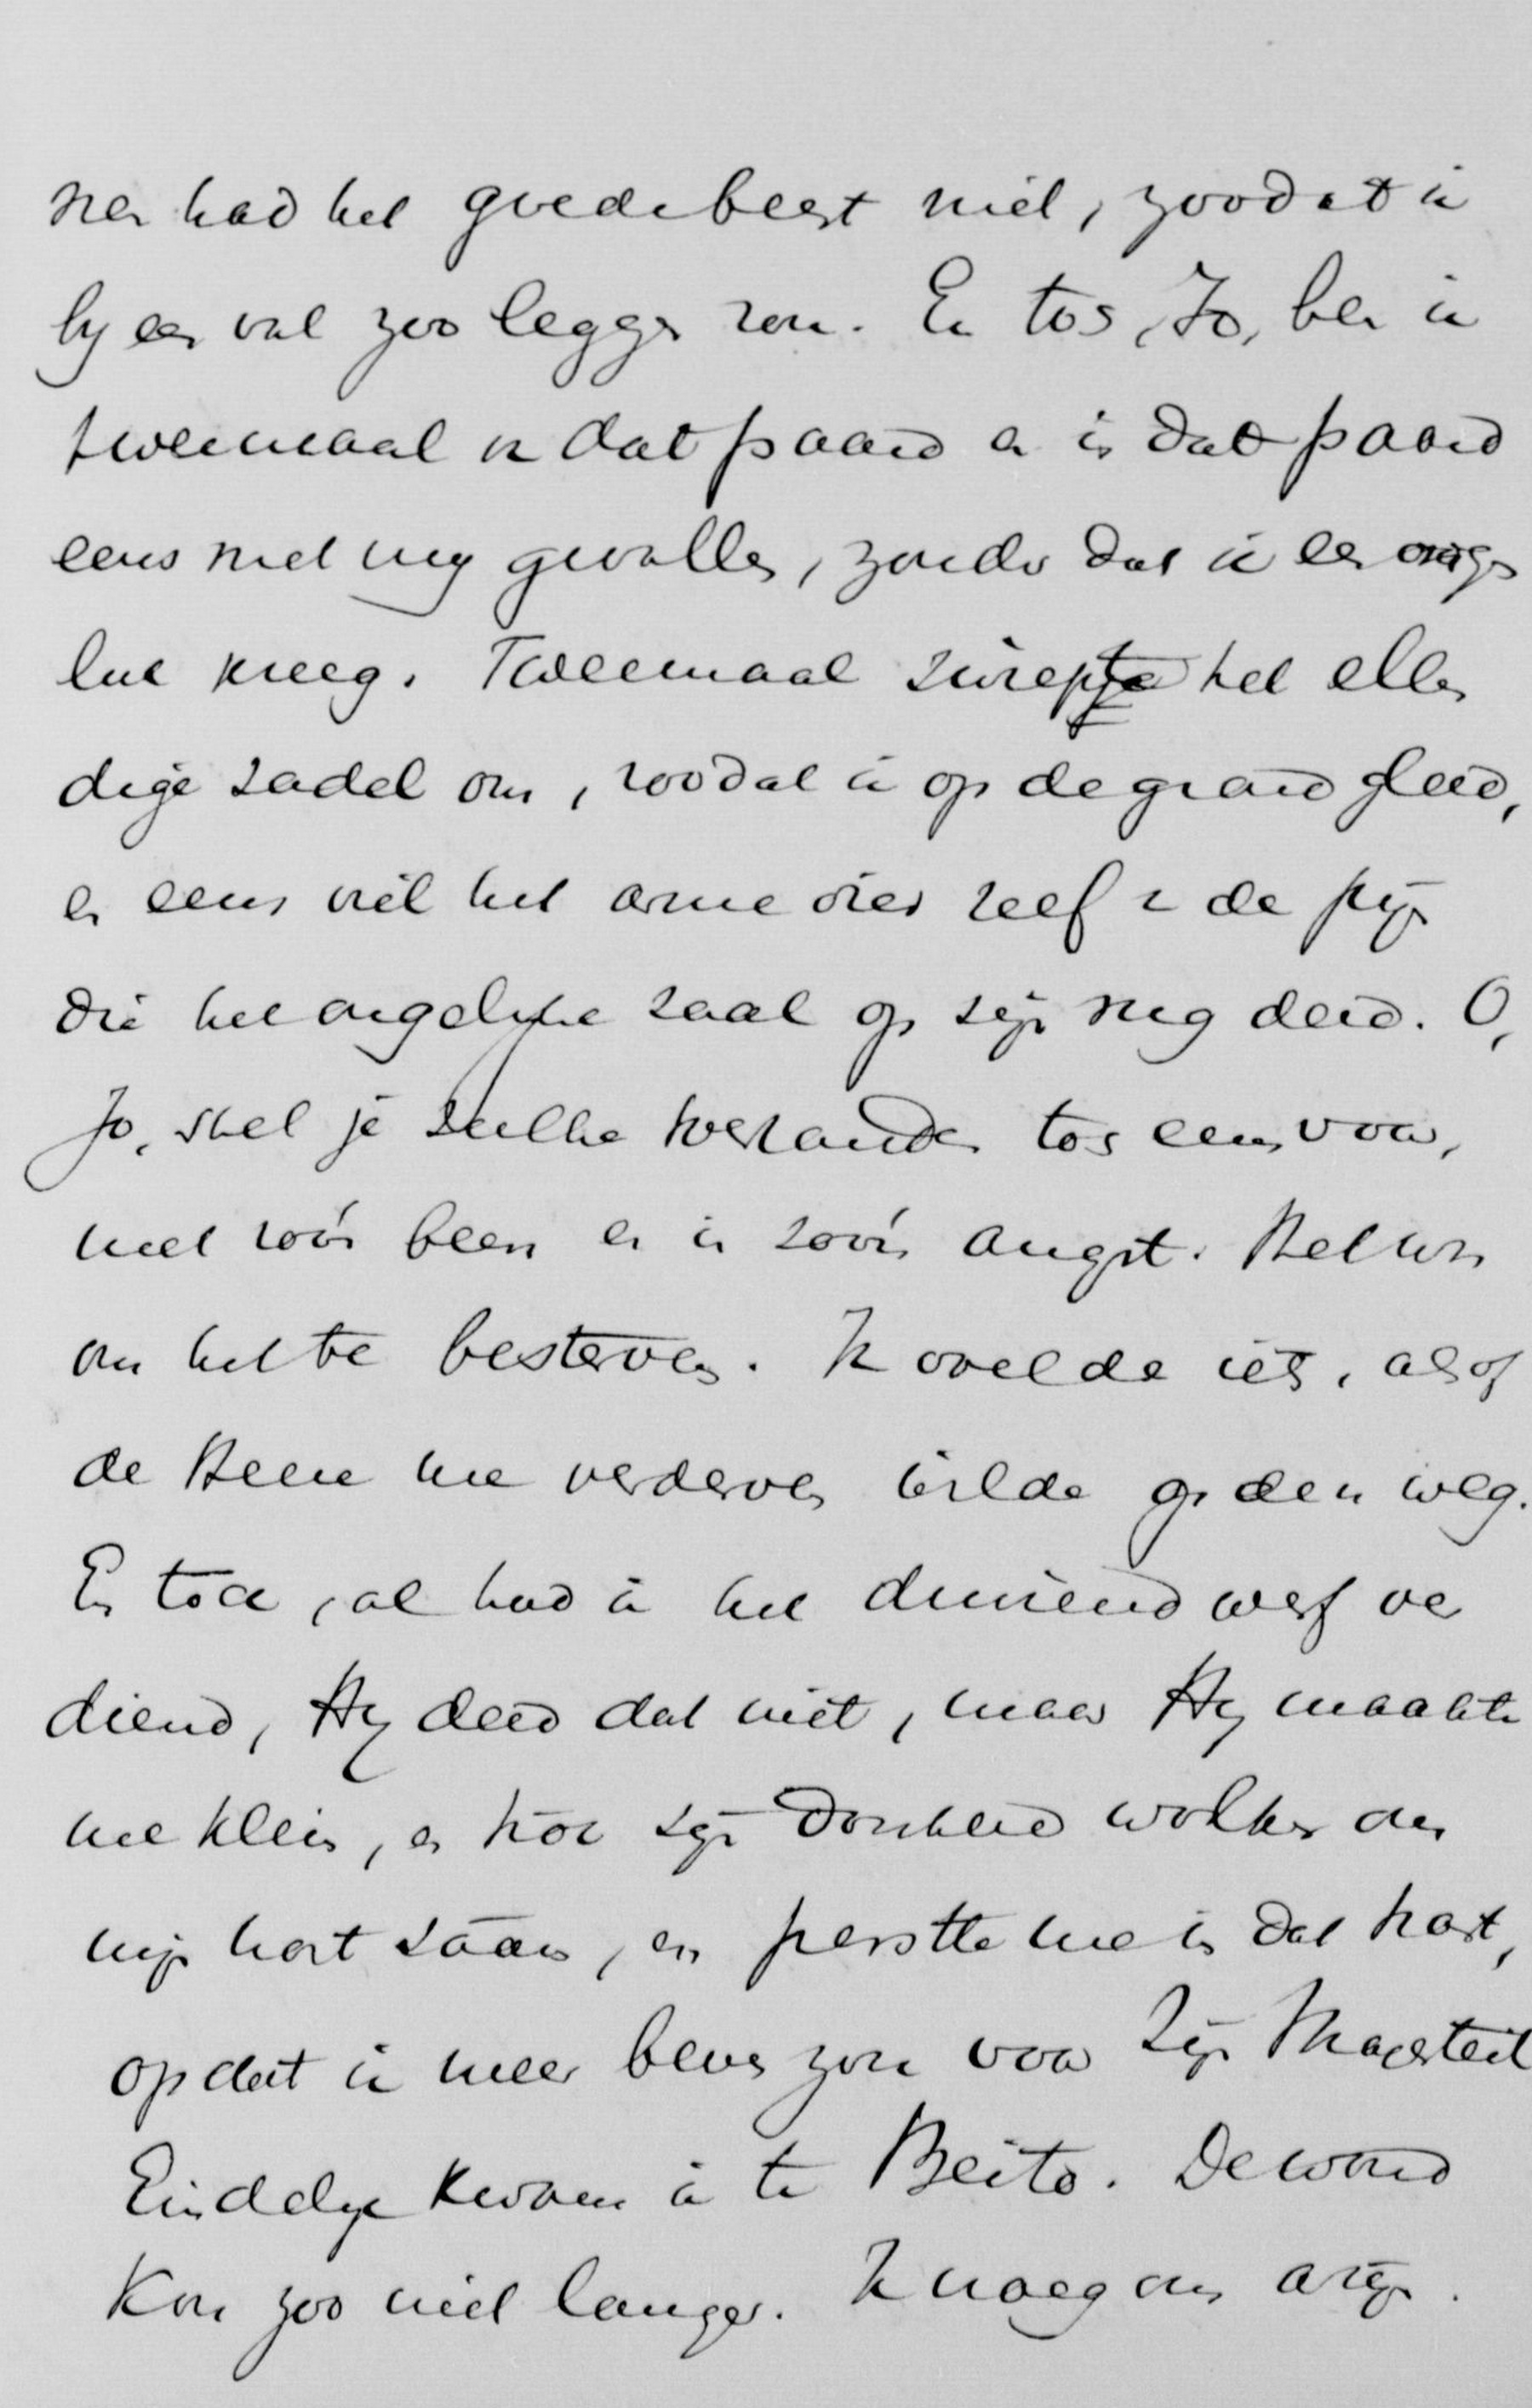 nen had het goede beest niet, zoodat ik
bij een val zoo leggen zou. En tog, Jo, ben ik
tweemaal van dat paard en is dat paard
eens met mij gevallen, zonder dat ik een onge
luk kreeg. Tweemaal het ellen
dige zadel om, zoodat ik op de grond gleed,
en eens viel het arme dier zelf v. de pijn
die het ongelukkige zaal op zijn rug deed. O,
Jo, stel je zulke toestanden tog eens voor,
met zoo'n been en in zoo'n angst. Het was
om het te besterven. Ik voelde iets, alsof
de Heere me verderven wilde op den weg.
En toch, al had ik het duizendwerf ver
diend, Hij deed dat niet, maar Hij maakte
me klein, en trok zijn donkere wolken om
mijn hart saam, en perste me in dat hart,
opdat ik meer beven zou voor Zijn Majesteit
Eindelijk kwam ik te Beito. De wond
kon zoo niet langer. Ik vroeg om